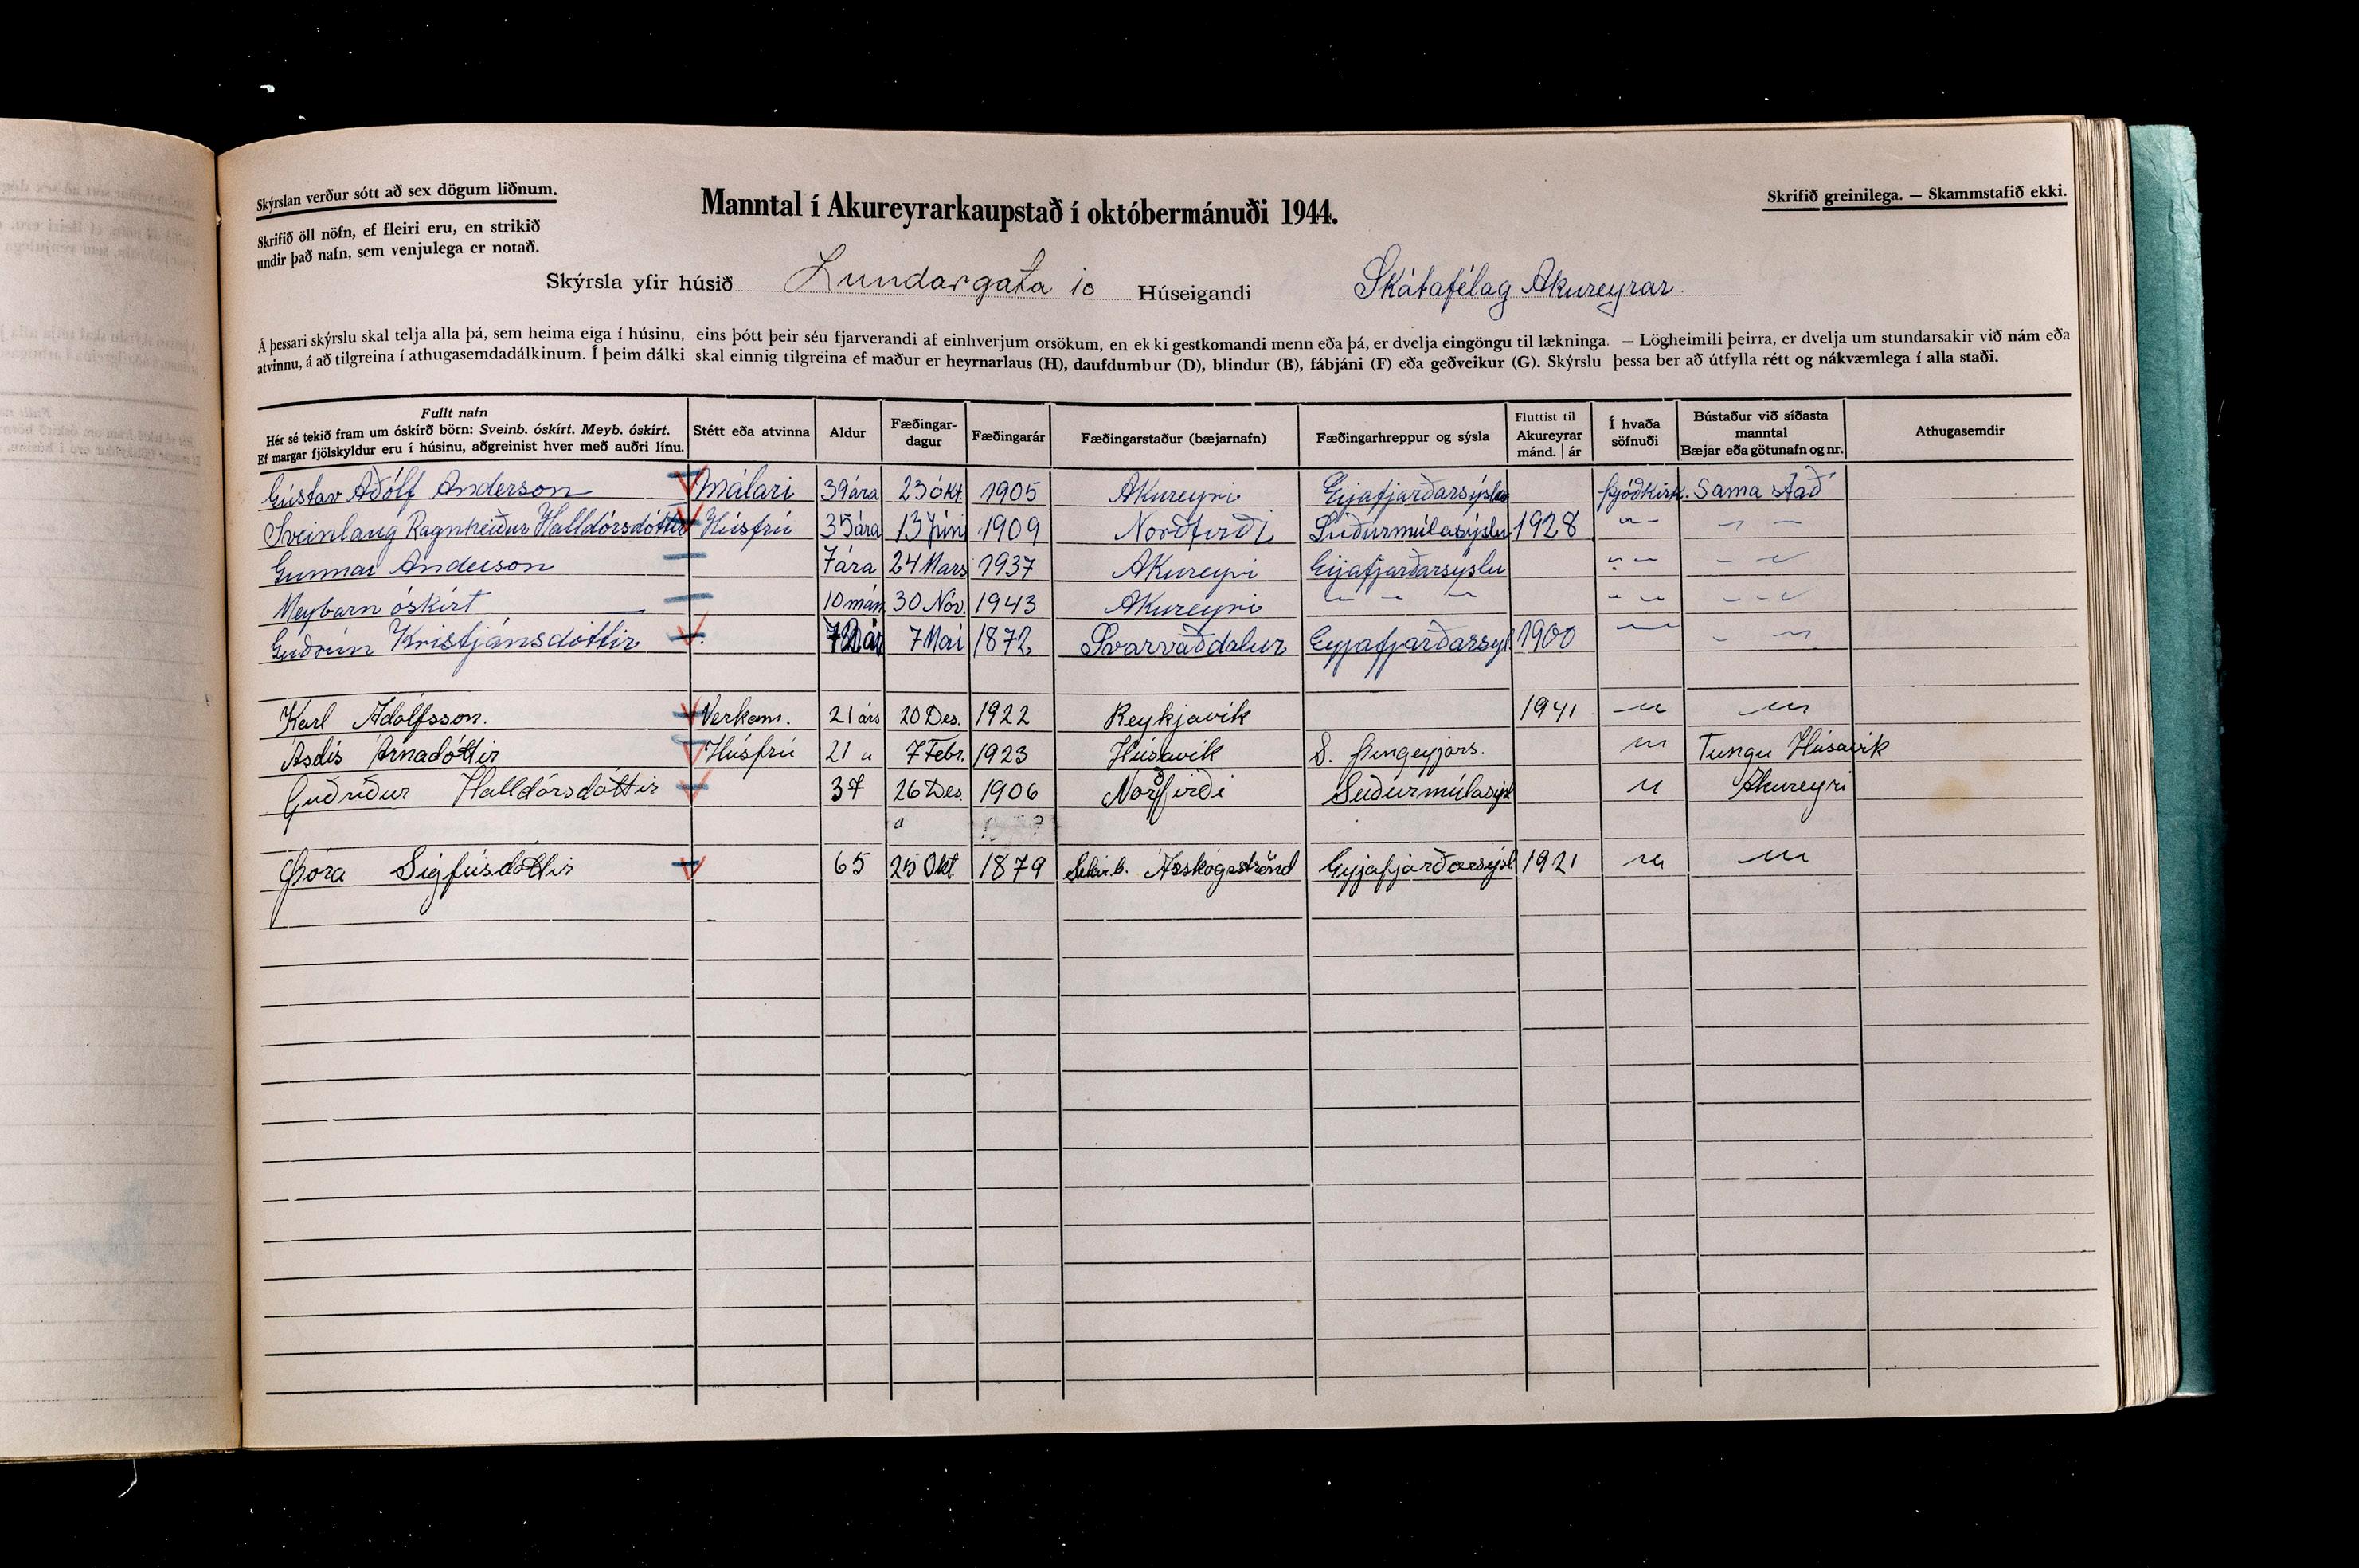 Skýrslan verður sótt að sex dögum liðnum.
Skrifið öll nöfn, ef fleiri eru, en strikið
undir það nafn, sem venjulega er notað.
Manntal í Akureyrarkaupstað í októbermánuði 1944.
Skrifið greinilega. — Skammstafið ekki.
Skýrsla yfir húsið Lundargata 10 Húseigandi Skátafélag Akureyrar.
Á þessari skýrslu skal telja alla þá, sem heima eiga í húsinu, eins þótt þeir séu fjarverandi af einhverjum orsökum, en ekki gestkomandi menn eða þá, er dvelja eingöngu til lækninga. — Lögheimili þeirra, er dvelja um stundarsakir við nám eða
atvinnu, á að tilgreina í athugasemdadálkinum. Í þeim dálki skal einnig tilgreina ef maður er heyrnarlaus (H), daufdumbur (D), blindur (B), fábjáni (F) eða geðveikur (G). Skýrslu þessa ber að útfylla rétt og nákvæmlega í alla staði.
Fullt nafn
Hér sé tekið fram um óskírð börn: Sveinb. óskírt. Meyb. óskírt.
Ef margar fjölskyldur eru í húsinu, aðgreinist hver með auðri línu.
Stétt eða atvinna
Aldur
Fæðingar-
dagur
Fæðingarár
Fæðingarstaður (bæjarnafn)
Fæðingarhreppur og sýsla
Fluttist til
Akureyrar
mánd. | ár
Í hvaða
söfnuði
Bústaður við síðasta
manntal
Bæjar eða götunafn og nr.
Athugasemdir
Gústav Aðólf Anderson Málari 39 ára 23 Okt. 1905 Akureyri Eyjafjarðarsýslu Þjóðkirk. Sama stað
Sveinlaug Ragnheiður Halldórsdóttir Húsfrú 35 ára 13 Júní 1909 Norðfirði Suðurmúlasýslu 1928 〃 〃
Gunnar Anderson 7 ára 24 Mars 1937 Akureyri Eyjafjarðarsýslu 〃 〃
Meybarn óskírt 10 mán 30 Nóv. 1943 Akureyri 〃 〃 〃
Guðrún Kristjánsdóttir 72 ár 7 Maí 1872 Svarvaðdalur Eyjafjarðarsýsl 1900 〃 〃
Karl Adólfsson. Verkam. 21 árs 20 Des. 1922 Reykjavík 1941 〃 〃
Ásdís Árnadóttir Húsfrú 21 〃 7 Febr. 1923 Húsavík S. Þingeyjars. 〃 Tungu Húsavík
Guðríður Halldórsdóttir 37 26 Des. 1906 Norðfirði Suðurmúlasýsl 〃 Akureyri
Þóra Sigfúsdóttir 65 25 Okt. 1879 Árskógsströnd Eyjafjarðarsýsl 1921 〃 〃